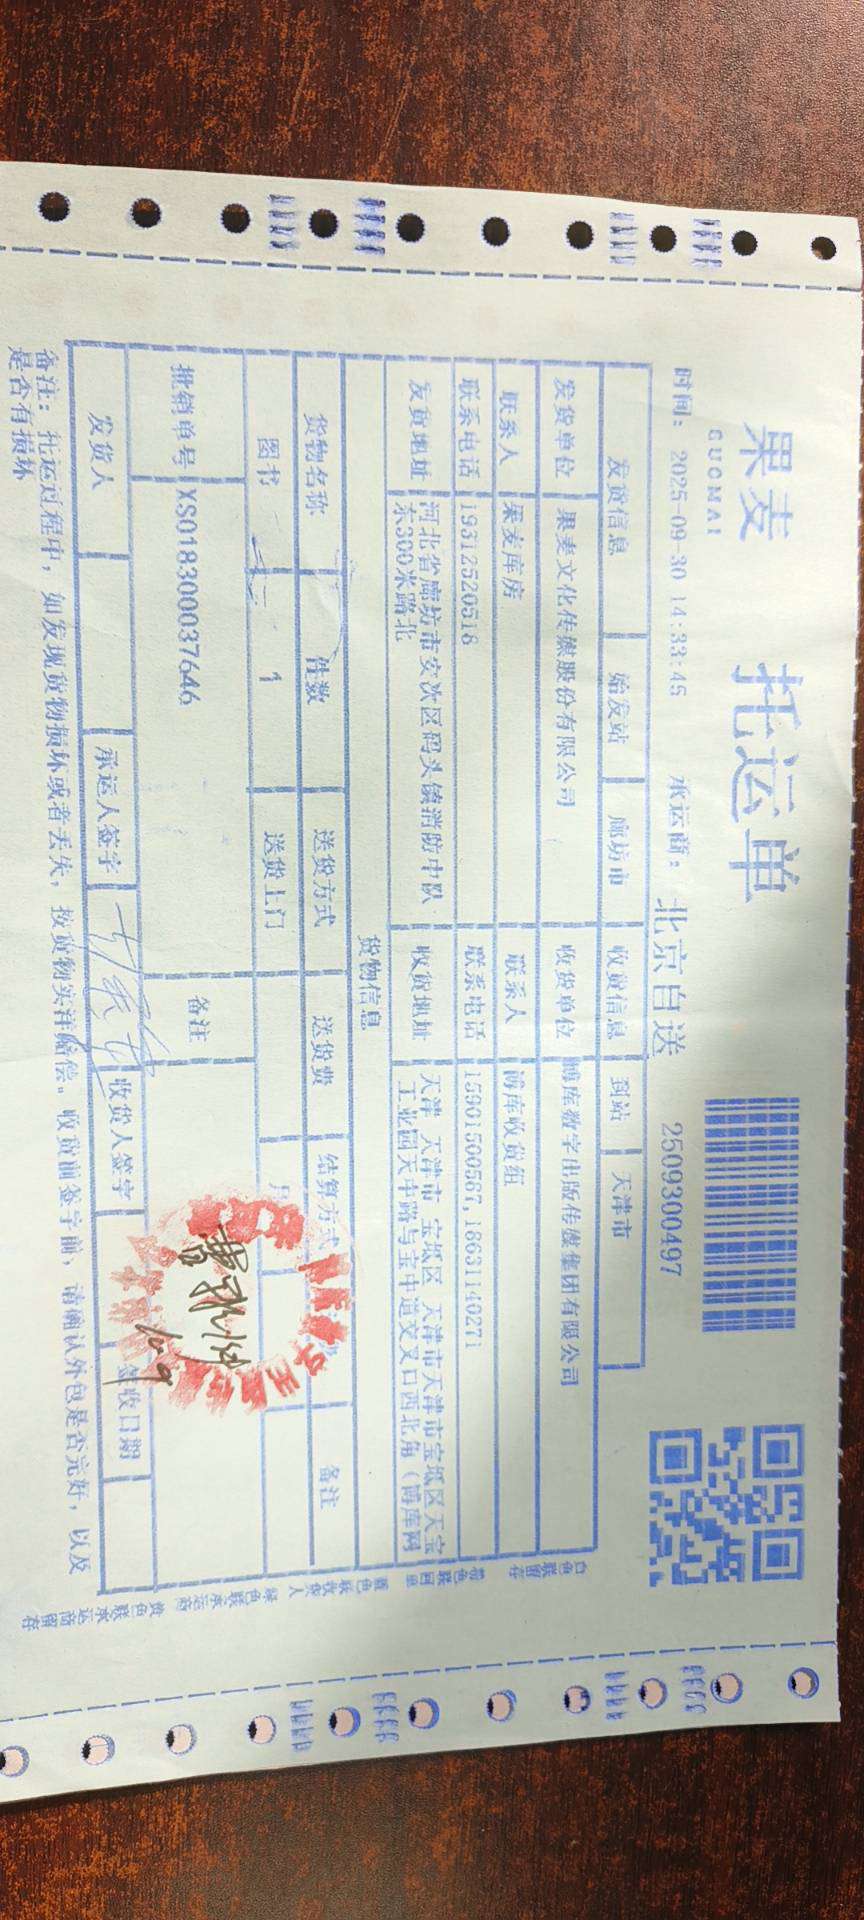 果麦
GUOMAI
托运单
时间: 2025-09-30 14:33:45 承运商: 北京自送 2509300497
发货信息 始发站 廊坊市 收货信息 到站 天津市
发货单位 果麦文化传媒股份有限公司 收货单位 博库数字出版传媒集团有限公司
联系人 果麦库房 联系人 博库收货组
联系电话 19312520516 联系电话 15901500587,18631140271
发货地址 河北省廊坊市安次区码头镇消防中队东300米路北 收货地址 天津 天津市 宝坻区 天津市天津市宝坻区天宝工业园天中路与宝中道交叉口西北角(博库网
货物信息
货物名称 件数 送货方式 送货费 结算方式 备注
图书 1 送货上门 月
批销单号 XS018300037646 备注
发货人 承运人签字 收货人签字 签收日期
10.9
备注: 托运过程中, 如发现货物损坏或者丢失, 按货物实洋赔偿。收货前签字前, 请确认外包是否完好, 以及
是否有损坏
白色联留存 联回单 蓝色联收货人 绿色联承运商 黄色联承运商留存